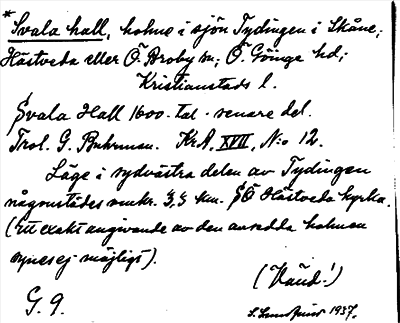 *Svala hall, holme i sjön Tydingen i Skåne;
Hästveda eller Ö. Broby sn; Ö. Göinge hd;
Kristianstads l.
Svala Hall 1600-tal - senare del.
Trol. G. Buhrman. Kr.A. XVII, N:o 12.
Läge i sydvästra delen av Tydingen
någonstädes omkr. 3,5 km. SÖ Hästveda kyrka.
(Ett exakt angivande av den avsedda holmen
synes ej möjligt).
(Känd!)
G. 9.
S. 1937.